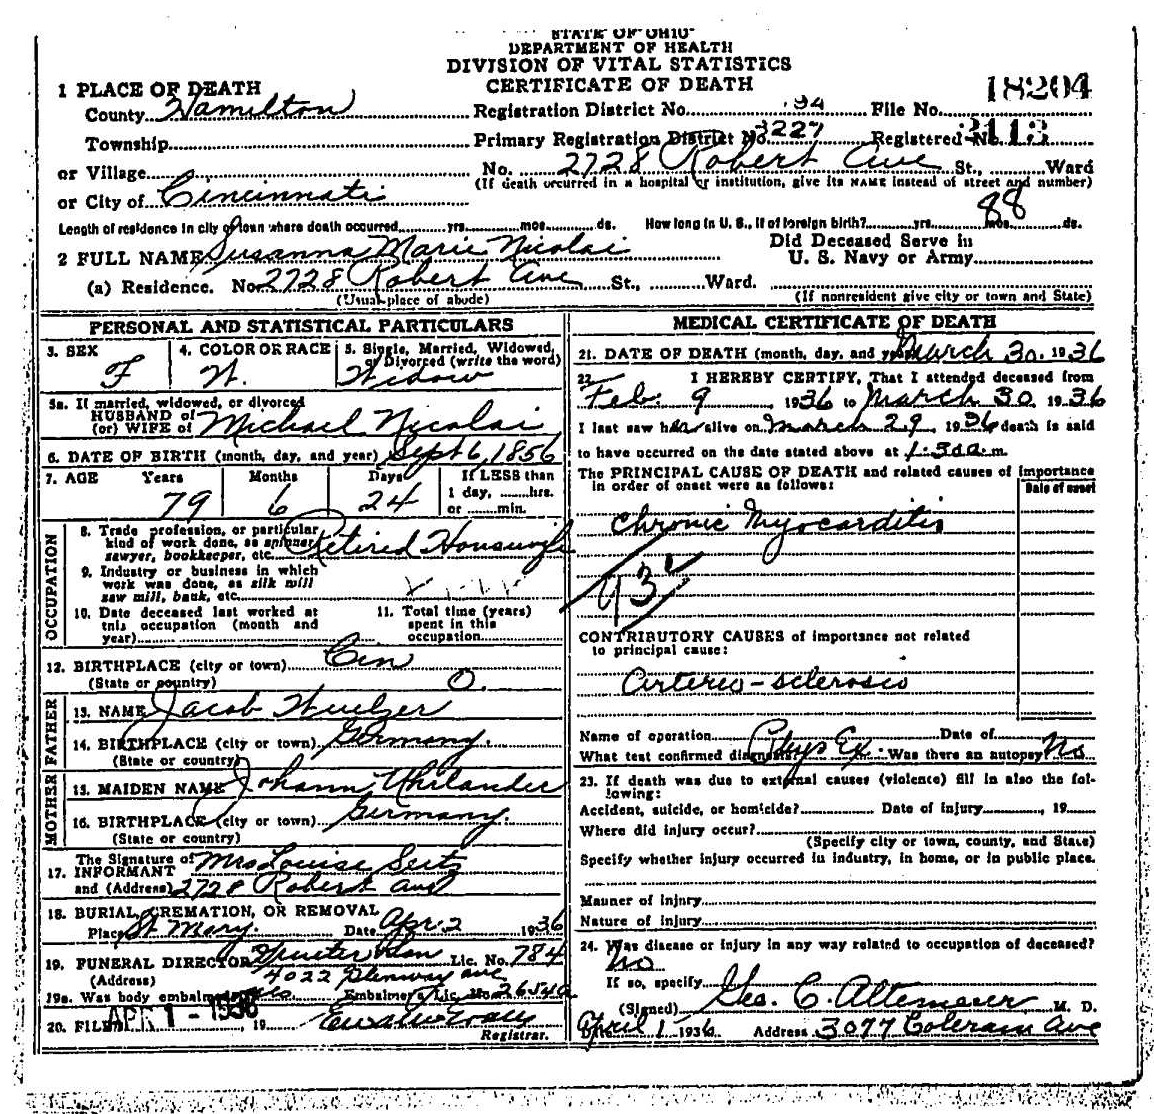 STATE OF OHIO
DEPARTMENT OF HEALTH
DIVISION OF VITAL STATISTICS
CERTIFICATE OF DEATH
18204
1 PLACE OF DEATH
County Hamilton Registration District No. 494 File No.
Township Primary Registration District No. 3227 Registered No. 2113
or Village No. 2728 Robert Ave St., Ward
(If death occurred in a hospital or institution, give its NAME instead of street and number)
or City of Cincinnati
Length of residence in city or town where death occurred yrs. mos. ds. How long in U. S., if of foreign birth? yrs. mos. ds.
88
2 FULL NAME Susanna Marie Nicolai Did Deceased Serve in U. S. Navy or Army
(a) Residence. No. 2728 Robert Ave St., Ward.
(Usual place of abode) (If nonresident give city or town and State)
PERSONAL AND STATISTICAL PARTICULARS
3. SEX F
4. COLOR OR RACE W.
5. Single, Married, Widowed, or Divorced (write the word) Widow
5a. If married, widowed, or divorced
HUSBAND of
(or) WIFE of Michael Nicolai
6. DATE OF BIRTH (month, day, and year) Sept 6, 1856
7. AGE Years 79 Months 6 Days 24 If LESS than 1 day, hrs. or min.
OCCUPATION
8. Trade profession, or particular
kind of work done, as spinner,
sawyer, bookkeeper, etc. Retired Housewife
9. Industry or business in which
work was done, as silk mill
saw mill, bank, etc.
10. Date deceased last worked at
this occupation (month and
year)
11. Total time (years)
spent in this
occupation
12. BIRTHPLACE (city or town) Cin
(State or country) O.
FATHER
13. NAME Jacob
14. BIRTHPLACE (city or town) Germany.
(State or country)
MOTHER
15. MAIDEN NAME Johann
16. BIRTHPLACE (city or town) Germany.
(State or country)
17. The Signature of
INFORMANT Mrs Louise Seits
and (Address) 2728 Robert Ave
18. BURIAL, CREMATION, OR REMOVAL
Place St Mary. Date Apr. 2 1936
19. FUNERAL DIRECTOR Son Lic. No. 784
(Address) 4022 Glenway ave
19a. Was body embalmed yes Embalmer's Lic. No. 2654a
20. FILED APR 1 - 1936, 19
Registrar.
MEDICAL CERTIFICATE OF DEATH
21. DATE OF DEATH (month, day, and year) March 30. 1936
22. I HEREBY CERTIFY, That I attended deceased from
Feb. 9, 1936 to March 30, 1936
I last saw her alive on March 29, 1936 death is said
to have occurred on the date stated above at 1:30a.m.
The PRINCIPAL CAUSE OF DEATH and related causes of importance
in order of onset were as follows:
Date of onset
Chronic Myocarditis
93
CONTRIBUTORY CAUSES of importance not related
to principal cause:
Arterio-sclerosis
Name of operation Date of
What test confirmed diagnosis? Phys Ex. Was there an autopsy No
23. If death was due to external causes (violence) fill in also the following:
Accident, suicide, or homicide? Date of injury, 19
Where did injury occur?
(Specify city or town, county, and State)
Specify whether injury occurred in industry, in home, or in public place.
Manner of injury
Nature of injury
24. Was disease or injury in any way related to occupation of deceased?
No
If so, specify
(Signed) Geo. C. Altemeier M. D.
Date April 1 1936 Address 3077 Colerain Ave